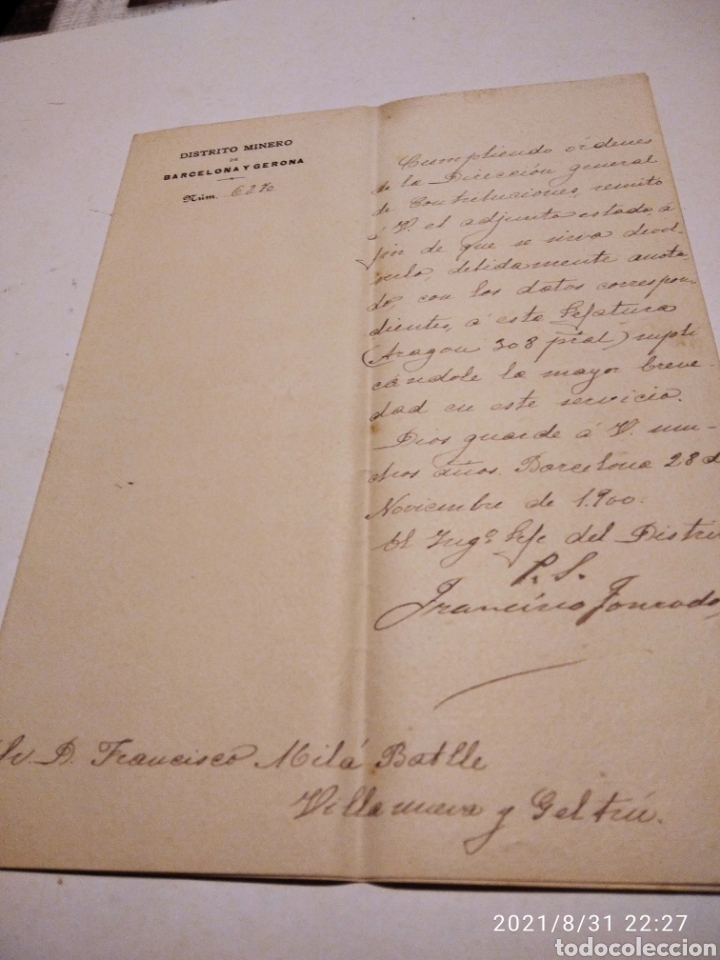 DISTRITO MINERO
DE
BARCELONA Y GERONA
Núm. 6270
Cumpliendo órdenes
de la Dirección general
de Contribuciones, remito
á V. el adjunto estado, á
fin de que se sirva devol-
verlo, debidamente anota-
do, con los datos correspon-
dientes, á esta Jefatura
(Aragon 308 pral) supli-
cándole la mayor breve-
dad en este servicio.
Dios guarde á V. mu-
chos años. Barcelona 28 d
Noviembre de 1.900.
El Ingº Jefe del Distri
P. S.
Francisco
Sr. D. Francisco Milá Batlle
Villanueva y Geltrú.
2021/8/31 22:27
todocoleccion